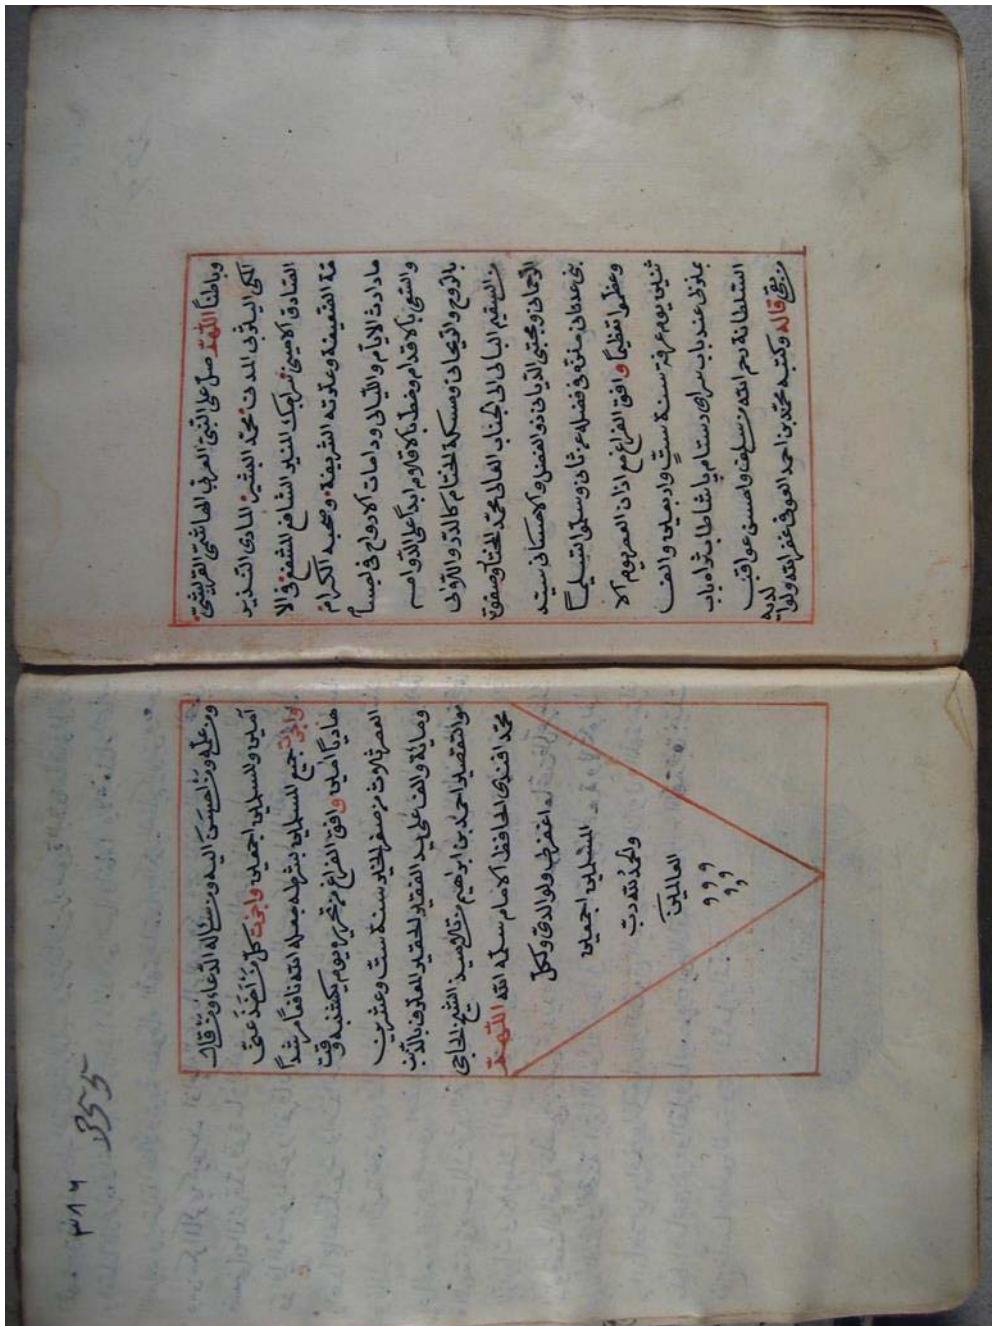 وباطناً اللهم صل على النبي العربي الهاشمي القريشي
المكي اليثربي المدني محمد البشير الهادي النذير
الصادق الامين نبيك المنير الشافع المشفع في الا
مة الشفيعة وعترته الشريفة وصحبه الكرام
مادارت الايام والليالي ودامت الارواح في اجسام
والسعي بالاقدام وخط بالاقلام ابداً على الدوام
بالروح والريحان ومسكة الختام كالدر واللؤلؤ
من السقيم البالي الى الجناب العالي محمد المختار صفوة
الرحمان ومجتبى الديان ذو الفضل والاحسان سيد
بني عدنان ماله في فضله من ثان وسلم تسليماً
وعظم تعظيماً وافق الفراغ مع اذان العصر يوم الا
ثنين يوم عرفة سنة ست واربعين والف
بمنزلي عند باب سراي دستام پاشا طاب ثراه باب
السلطانة رحم الله من سلف واحسن عواقب
من بقي قاله وكتبه محمد بن احمد العوفي غفر الله ولوا
لديه
ومن علمه ومن احسن اليه ومن سأله الدعاء ومن قال
آمين والمسلمين اجمعين واجزت كل من اخذ عني
واجزت جميع المسلمين بشرطه جعله الله نافعاً مرشداً
هادياً آمين وافق الفراغ من تحريره يوم يكشنبه وقت
العصر ثلاث من صفر الخير سنة ست وعشرين
ومائة والف على يد الفقير الحقير المعترف بالذنب
والتقصير احمد بن ابراهيم من تلاميذ الشيخ الحاجي
محمد افندي الحافظ الامام سلمه الله اللهم
اغفر لي ولوالدي ولكل
المسلمين اجمعين
والحمد لله رب
العالمين
٣٨٦
355